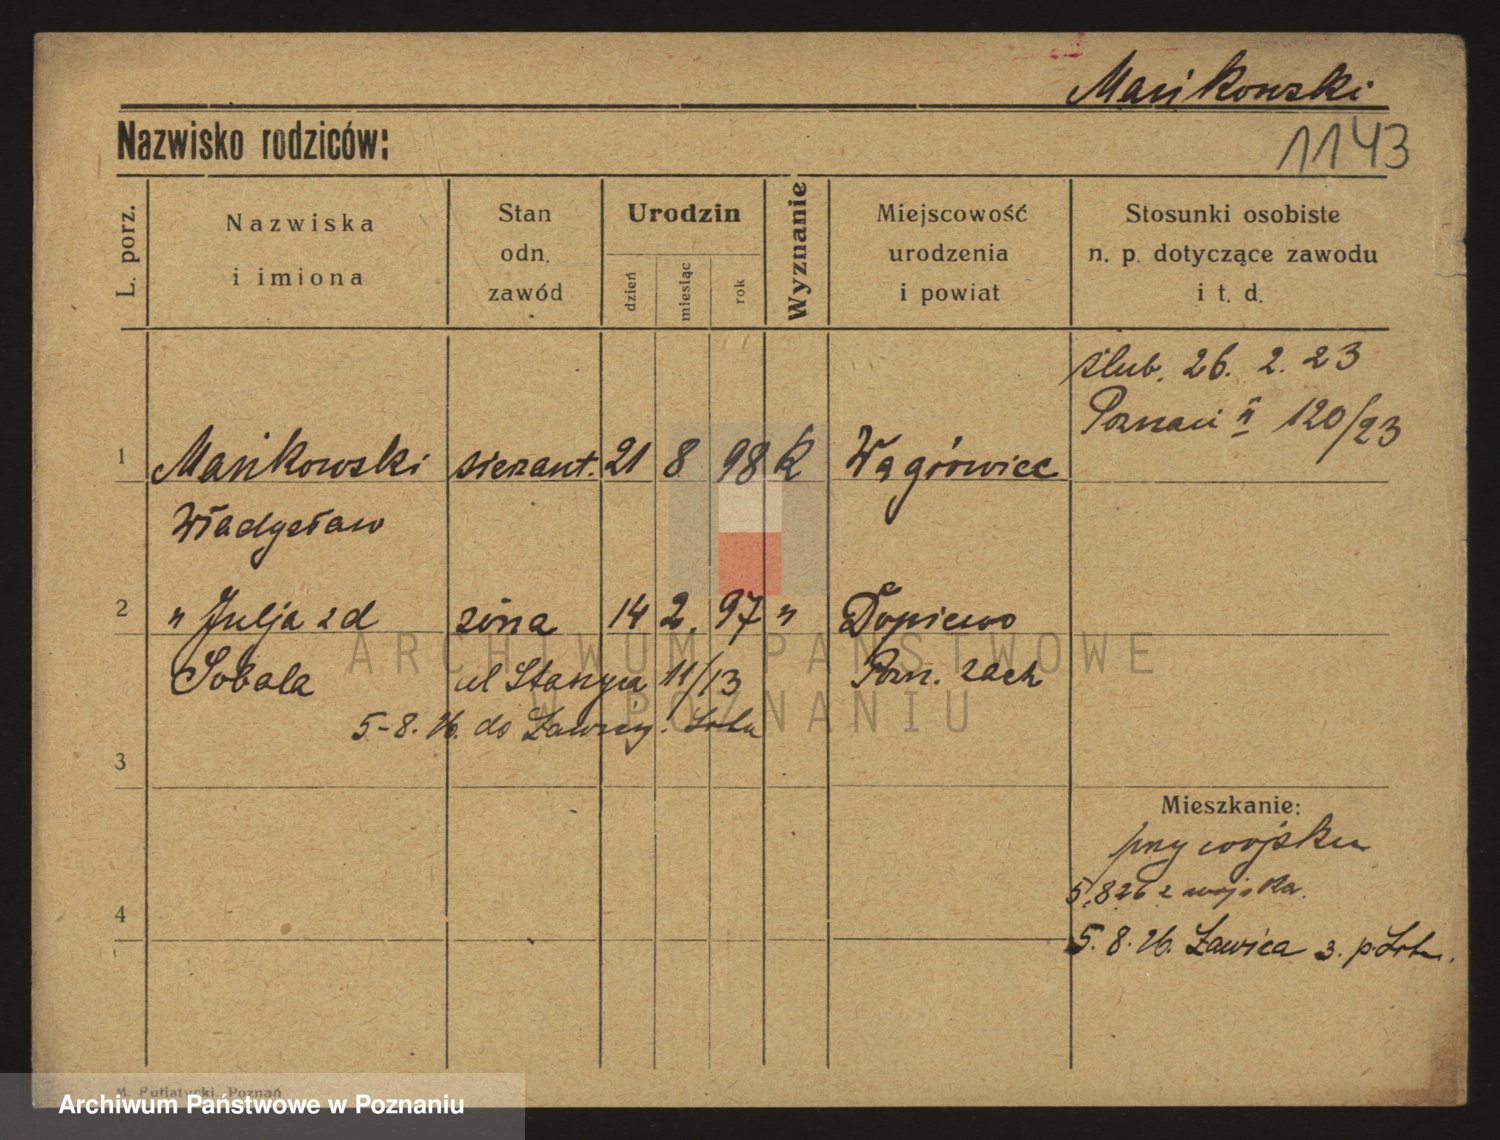 Mańkowski
Nazwisko rodziców:
1143
L. porz.
Nazwiska
i imiona
Stan
odn.
zawód
Urodzin
dzień
miesiąc
rok
Wyznanie
Miejscowość
urodzenia
i powiat
Stosunki osobiste
n. p. dotyczące zawodu
i t. d.
ślub. 26. 2. 23
Poznań II 120/23
1 Mańkowski sierżant. 21 8 98 K Wągrówiec
Władysław
2 " Julja zd żona 14 2. 97 " Dopiewo
Sobala ul 11/13 Pozn. zach
5-8. 26. do
3
Mieszkanie:
przy wojsku
5.8 26 z wojska.
4
5. 8. 26. Ławica 3. p.
ARCHIWUM PAŃSTWOWE
W POZNANIU
M. Putiatycki, Poznań
Archiwum Państwowe w Poznaniu